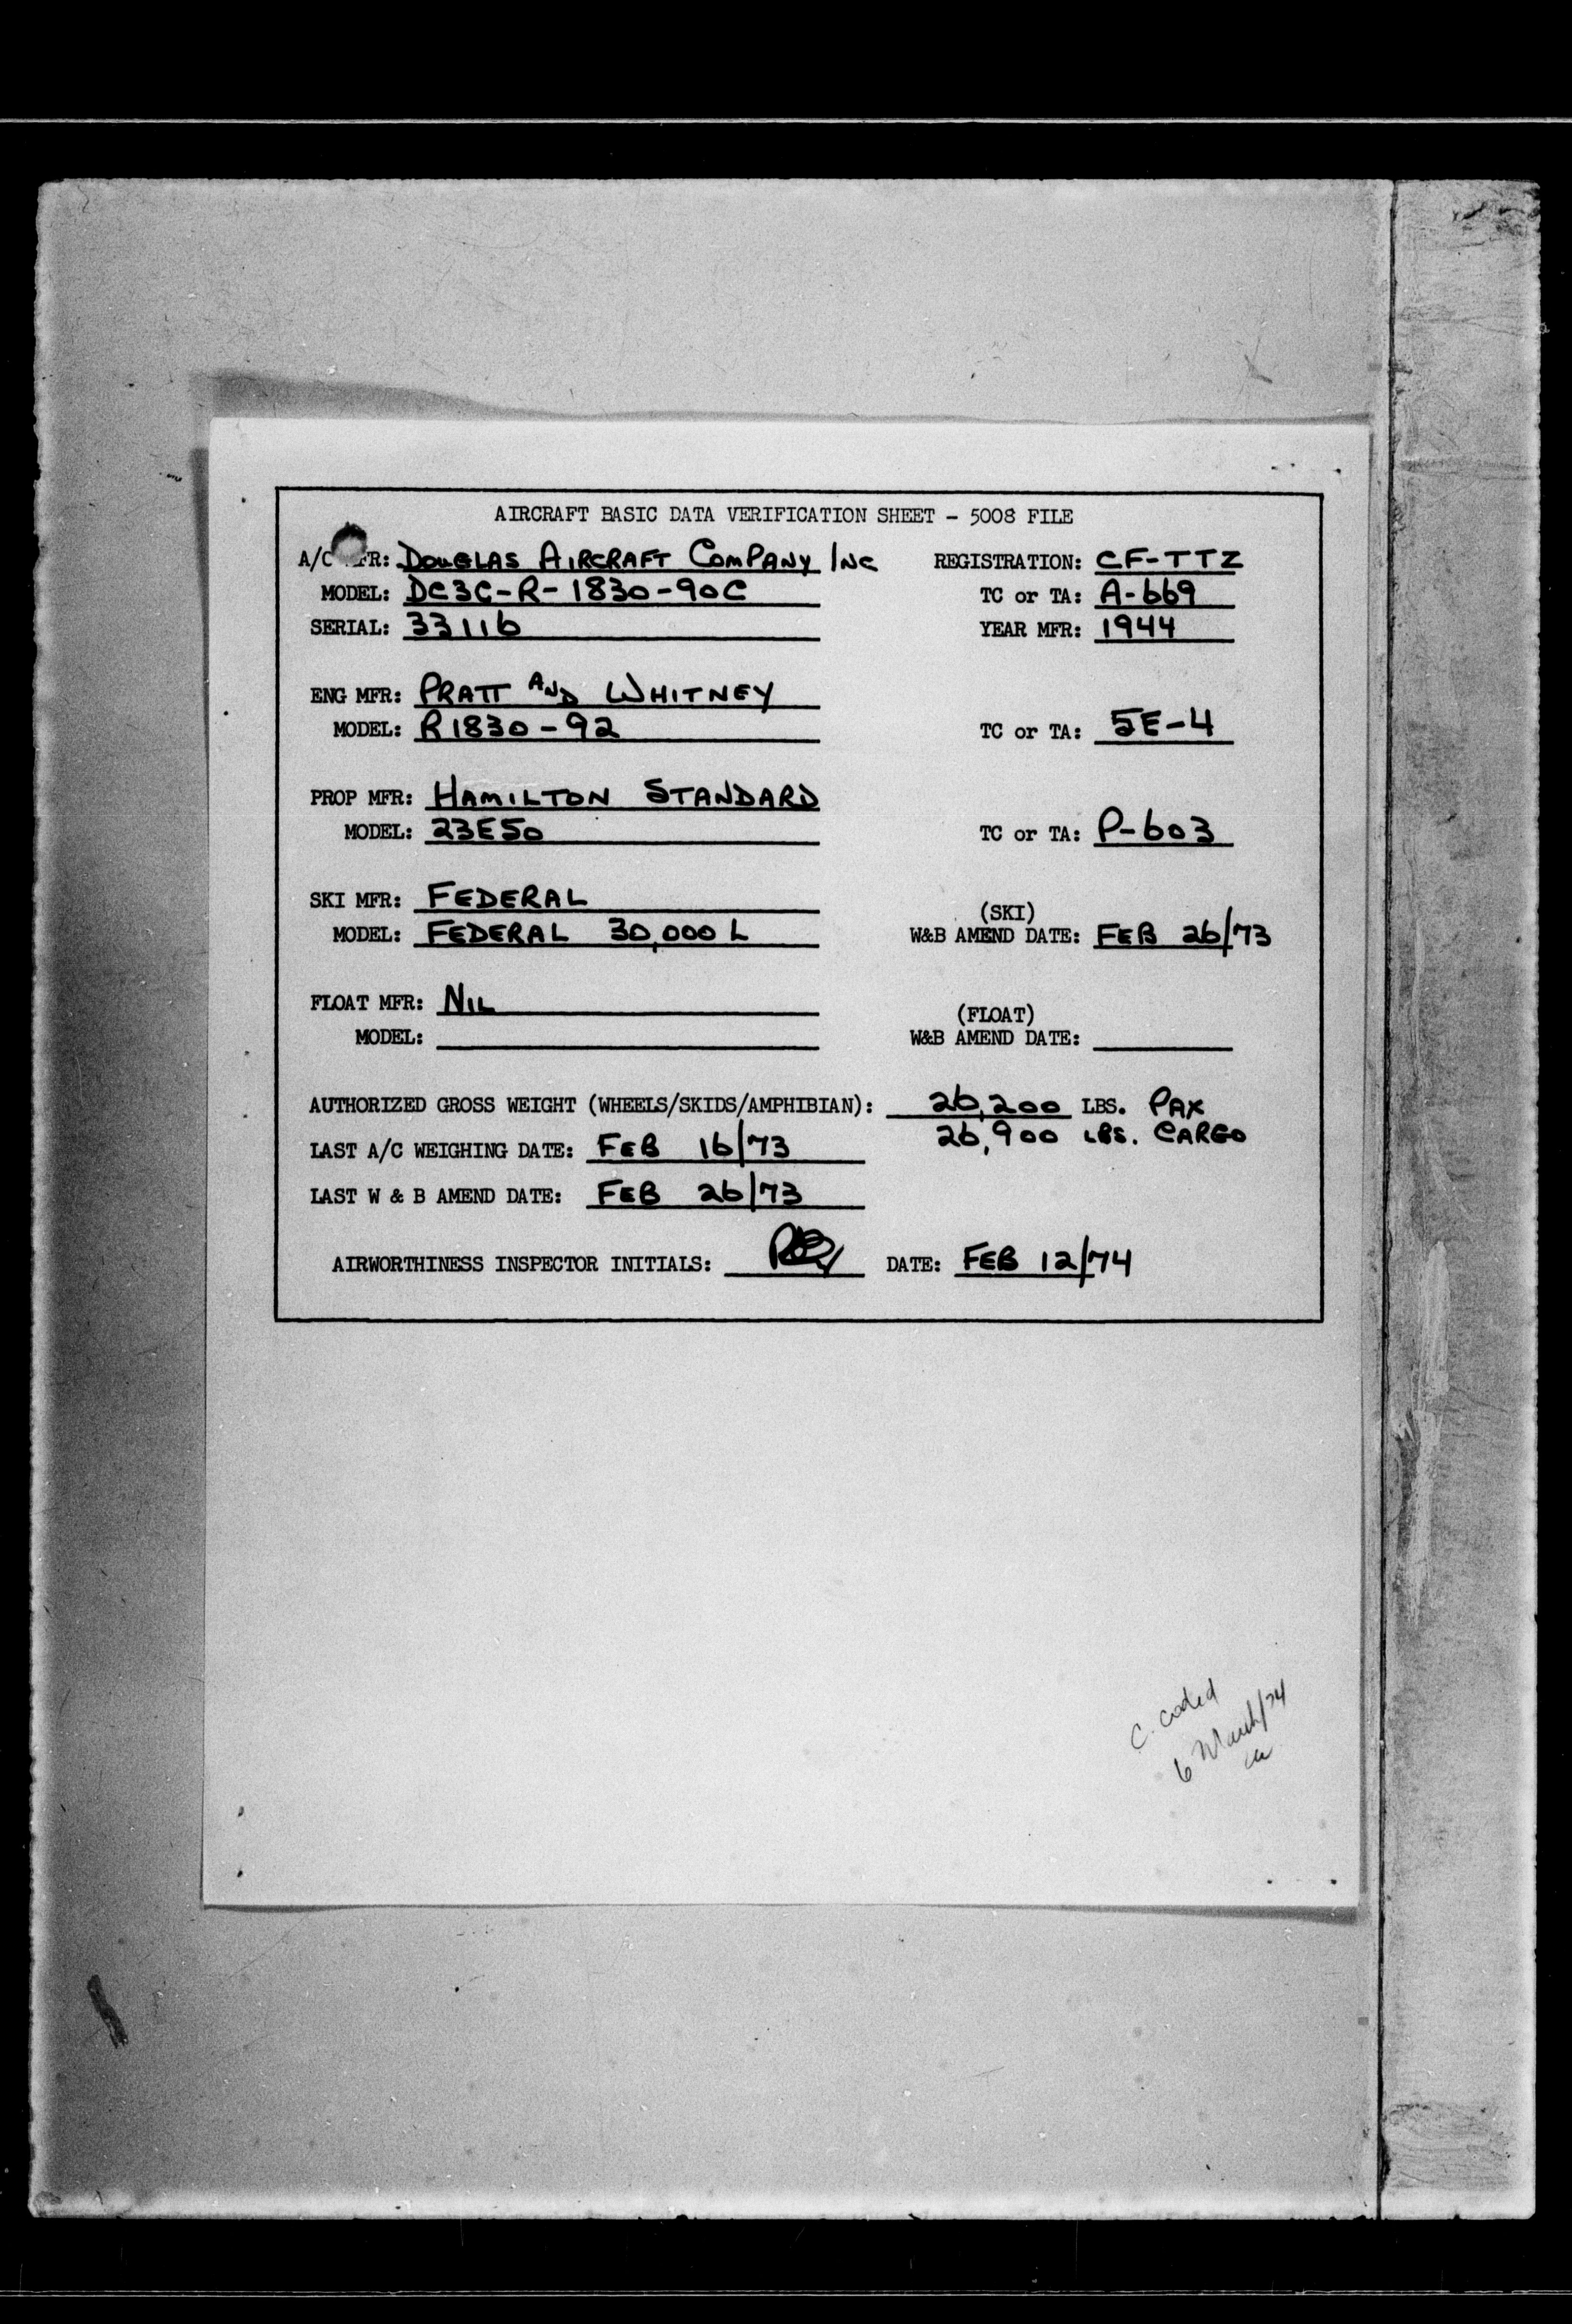 AIRCRAFT BASIC DATA VERIFICATION SHEET - 5008 FILE
A/C FR: DOUGLAS AIRCRAFT COMPANY INC REGISTRATION: CF-TTZ
MODEL: DC3C-R-1830-90C TC or TA: A-669
SERIAL: 33116 YEAR MFR: 1944
ENG MFR: PRATT AND WHITNEY
MODEL: R1830-92 TC or TA: 5E-4
PROP MFR: HAMILTON STANDARD
MODEL: 23E50 TC or TA: P-603
SKI MFR: FEDERAL (SKI)
MODEL: FEDERAL 30,000 L W&B AMEND DATE: FEB 26/73
FLOAT MFR: NIL (FLOAT)
MODEL: W&B AMEND DATE:
AUTHORIZED GROSS WEIGHT (WHEELS/SKIDS/AMPHIBIAN): 26,200 LBS. PAX
26,900 LBS. CARGO
LAST A/C WEIGHING DATE: FEB 16/73
LAST W & B AMEND DATE: FEB 26/73
AIRWORTHINESS INSPECTOR INITIALS: DATE: FEB 12/74
C. coded
6 March/74